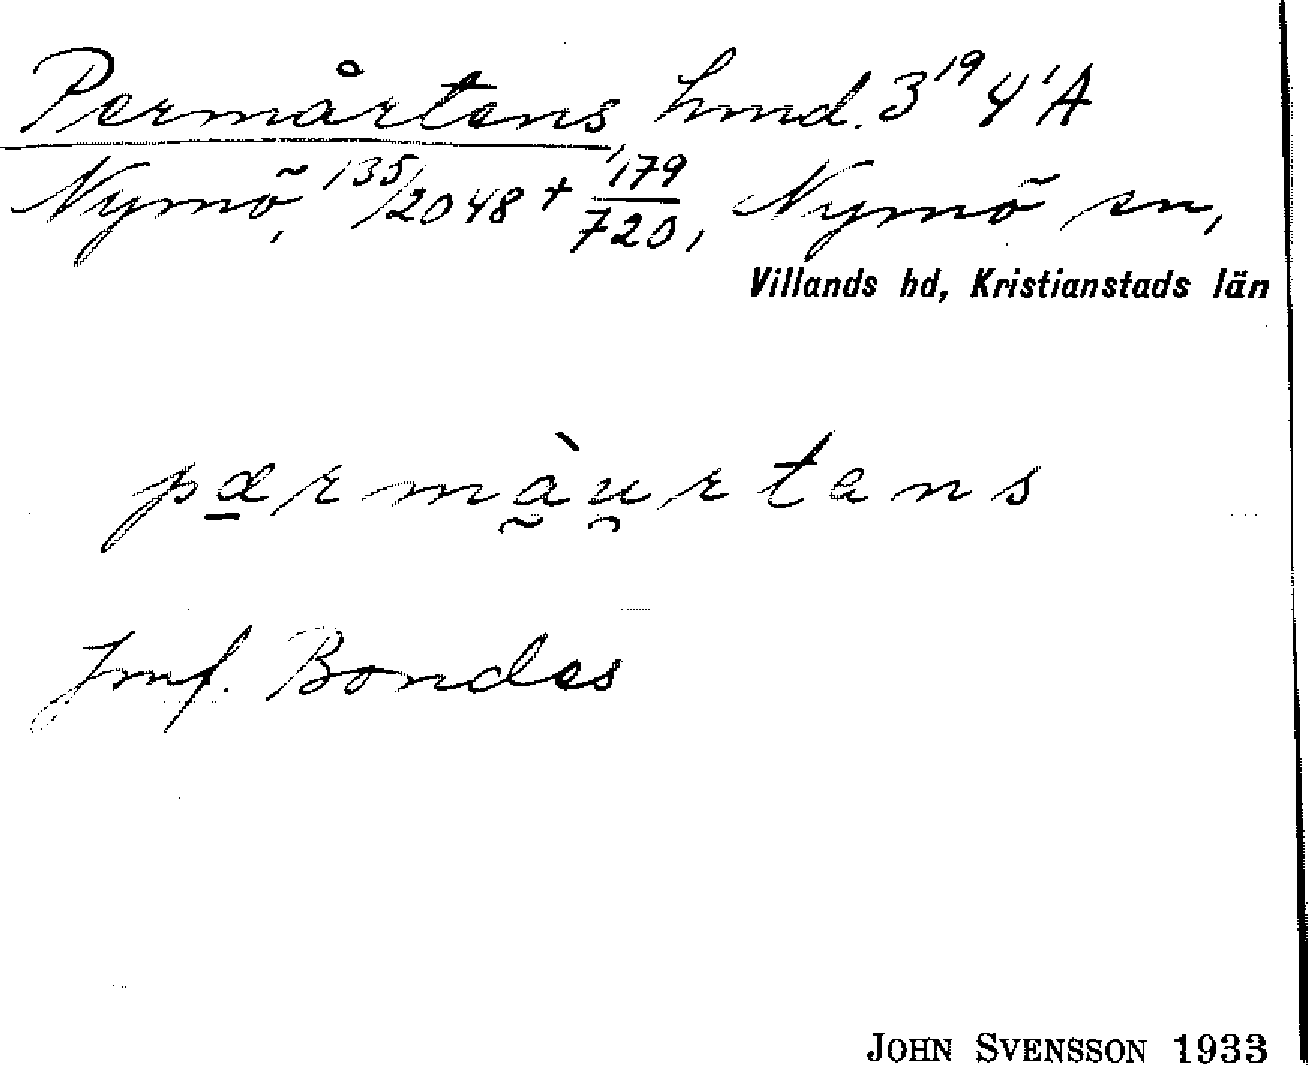 Permårtens, hmd. 3¹⁹ 4¹ A
Nymö, 135/2048 + 179/720, Nymö sn,
Villands hd, Kristianstads län
pærmà̰u̯rtans
Jmf. Bondes
JOHN SVENSSON 1933